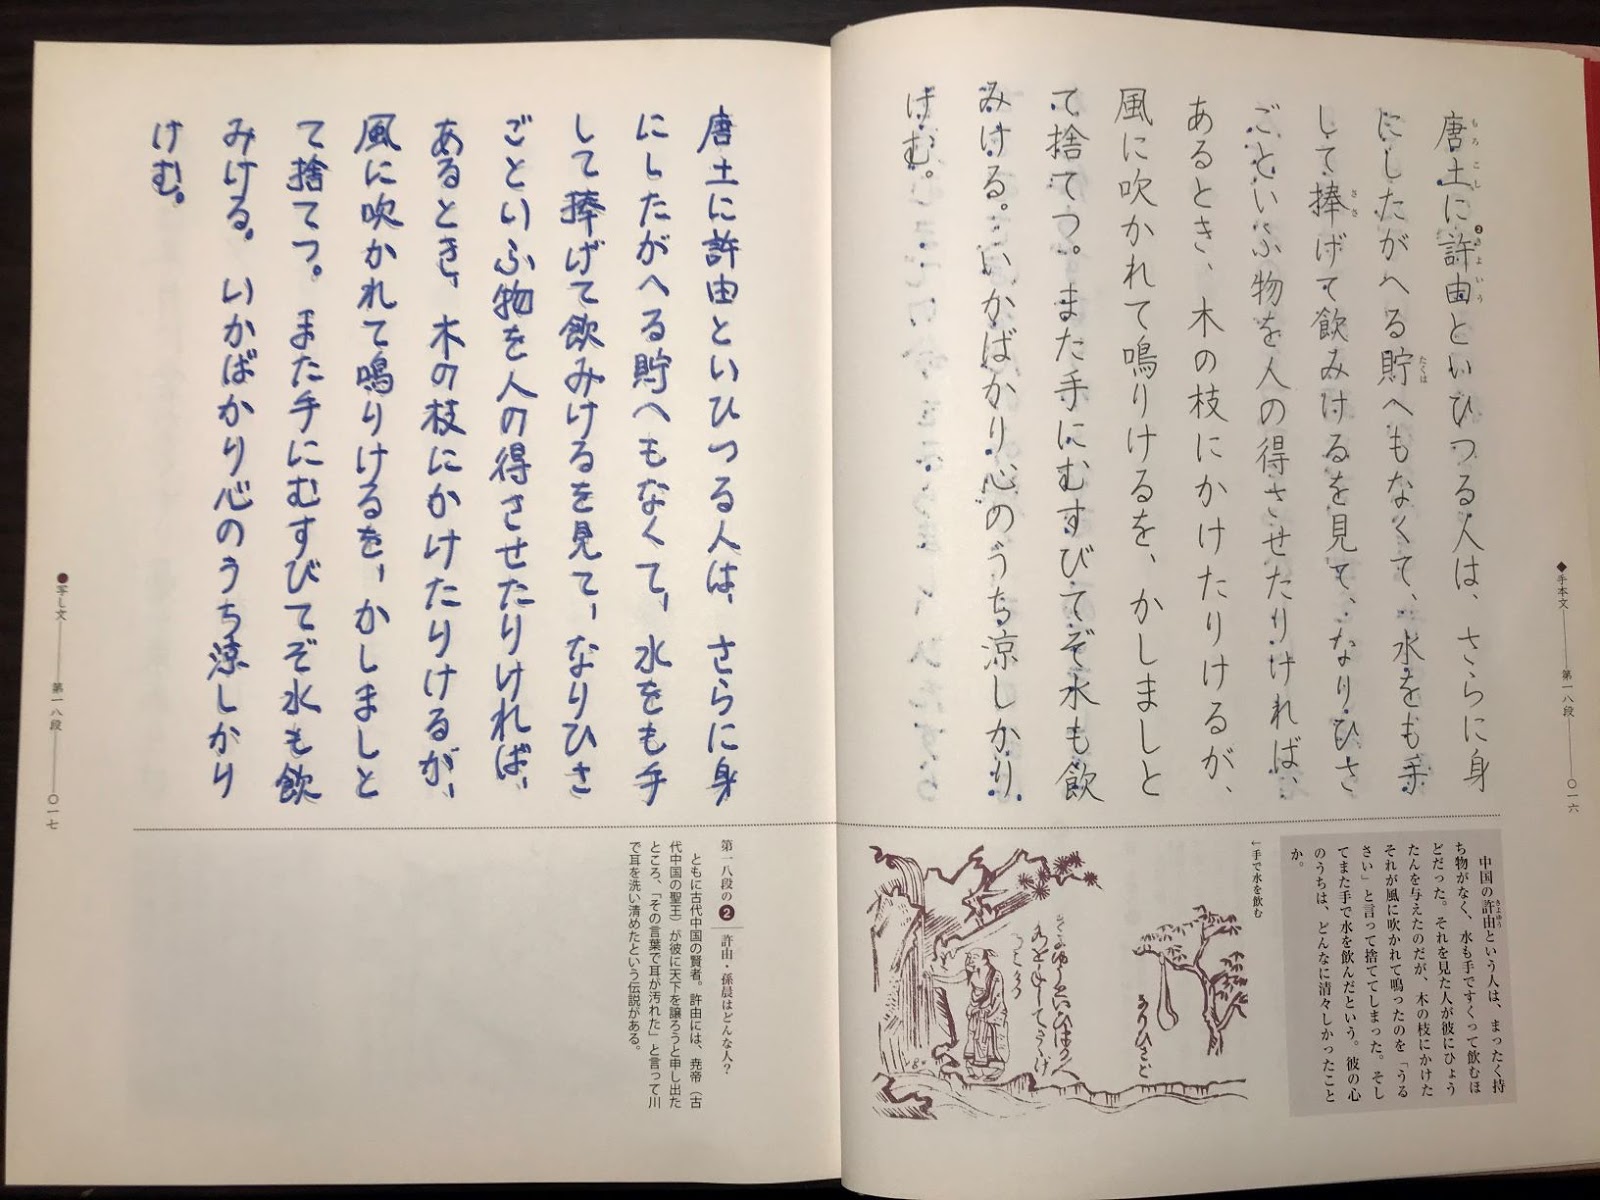 ◆手本文――第一八段――〇一六
もろこし ❷きよいう
唐土に許由といひつる人は、さらに身
たくは
にしたがへる貯へもなくて、水をも手
ささ
して捧げて飲みけるを見て、なりひさ
ごといふ物を人の得させたりければ、
あるとき、木の枝にかけたりけるが、
風に吹かれて鳴りけるを、かしましと
て捨てつ。また手にむすびてぞ水も飲
みける。いかばかり心のうち涼しかり
けむ。
きよゆう
中国の許由という人は、まったく持
ち物がなく、水も手ですくって飲むほ
どだった。それを見た人が彼にひょう
たんを与えたのだが、木の枝にかけた
それが風に吹かれて鳴ったのを「うる
さい」と言って捨ててしまった。そし
てまた手で水を飲んだという。彼の心
のうちは、どんなに清々しかったこと
か。
←手で水を飲む
なりひさご
唐土に許由といひつる人は、さらに身
にしたがへる貯へもなくて、水をも手
して捧げて飲みけるを見て、なりひさ
ごといふ物を人の得させたりければ、
あるとき、木の枝にかけたりけるが、
風に吹かれて鳴りけるを、かしましと
て捨てつ。また手にむすびてぞ水も飲
みける。いかばかり心のうち涼しかり
けむ。
第一八段の❷ 許由・孫晨はどんな人?
ともに古代中国の賢者。許由には、堯帝(古
代中国の聖王)が彼に天下を譲ろうと申し出た
ところ、「その言葉で耳が汚れた」と言って川
で耳を洗い清めたという伝説がある。
●写し文――第一八段――〇一七